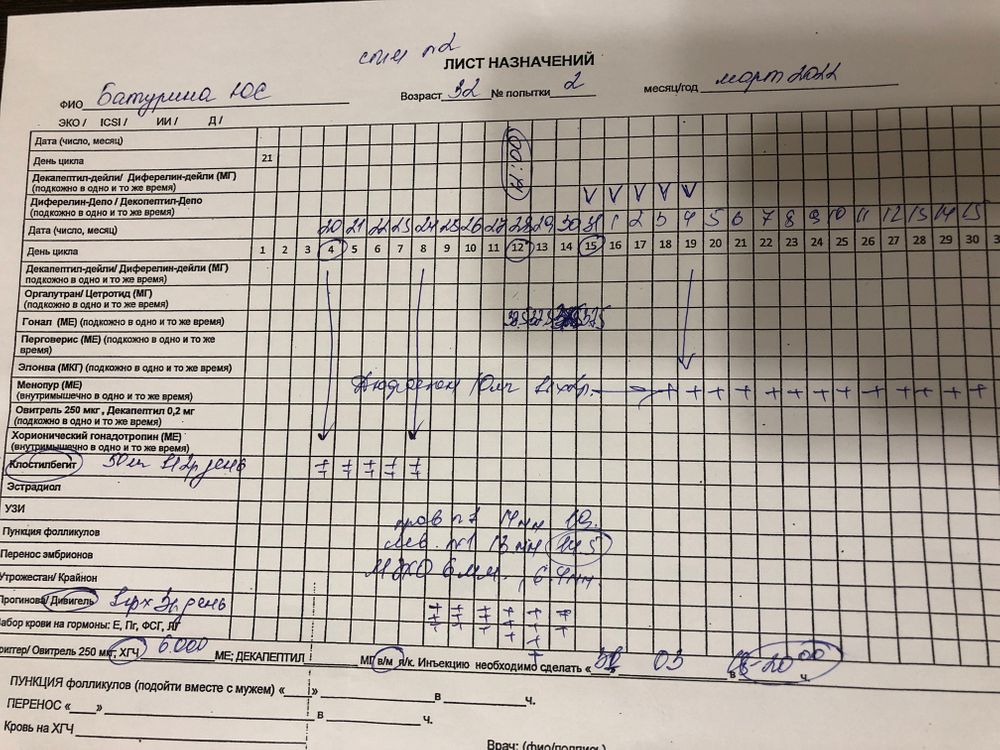 стим п2
ЛИСТ НАЗНАЧЕНИЙ
ФИО Батурина ЮС Возраст 32 № попытки 2 месяц/год март 2022
ЭКО / ICSI / ИИ / Д /
Дата (число, месяц)
День цикла 21
Декапептил-дейли/ Диферелин-дейли (МГ)
(подкожно в одно и то же время)
Диферелин-Депо / Декопептил-Депо
(подкожно в одно и то же время) V V V V V
Дата (число, месяц) 20 21 22 23 24 25 26 27 28 29 30 31 1 2 3 4 5 6 7 8 9 10 11 12 13 14 15
День цикла 1 2 3 4 5 6 7 8 9 10 11 12 13 14 15 16 17 18 19 20 21 22 23 24 25 26 27 28 29 30 3
Декапептил-дейли/ Диферелин-дейли (МГ)
подкожно в одно и то же время)
Оргалутран/ Цетротид (МГ)
(подкожно в одно и то же время)
Гонал (МЕ) (подкожно в одно и то же время) 37,5
Перговерис (МЕ) (подкожно в одно и то же
время)
Элонва (МКГ) (подкожно в одно и то же время)
Менопур (МЕ)
(внутримышечно в одно и то же время) Дюфастон 10мг + + + + + + + + + + + + +
Овитрель 250 мкг , Декапептил 0,2 мг
(подкожно в одно и то же время)
Хорионический гонадотропин (МЕ)
(внутримышечно в одно и то же время)
Клостилбегит 50мг день
Эстрадиол
УЗИ
прав п2 14мм 19.
Пункция фолликулов
лев. п1 13мм 14,5
Перенос эмбрионов
МЭХО 6мм. 6.4мм.
Утрожестан/ Крайнон
Прогинова/ Дивигель 1гр х 3р день
Забор крови на гормоны: Е, Пг, ФСГ, ЛГ
риггер/ Овитрель 250 мкг, ХГЧ 6.000 МЕ; ДЕКАПЕПТИЛ МГ в/м п/к. Инъекцию необходимо сделать « » 03 в 20 00 ч
ПУНКЦИЯ фолликулов (подойти вместе с мужем) « » в ч.
ПЕРЕНОС « » в ч.
Кровь на ХГЧ
Врач: (фио/подпись)